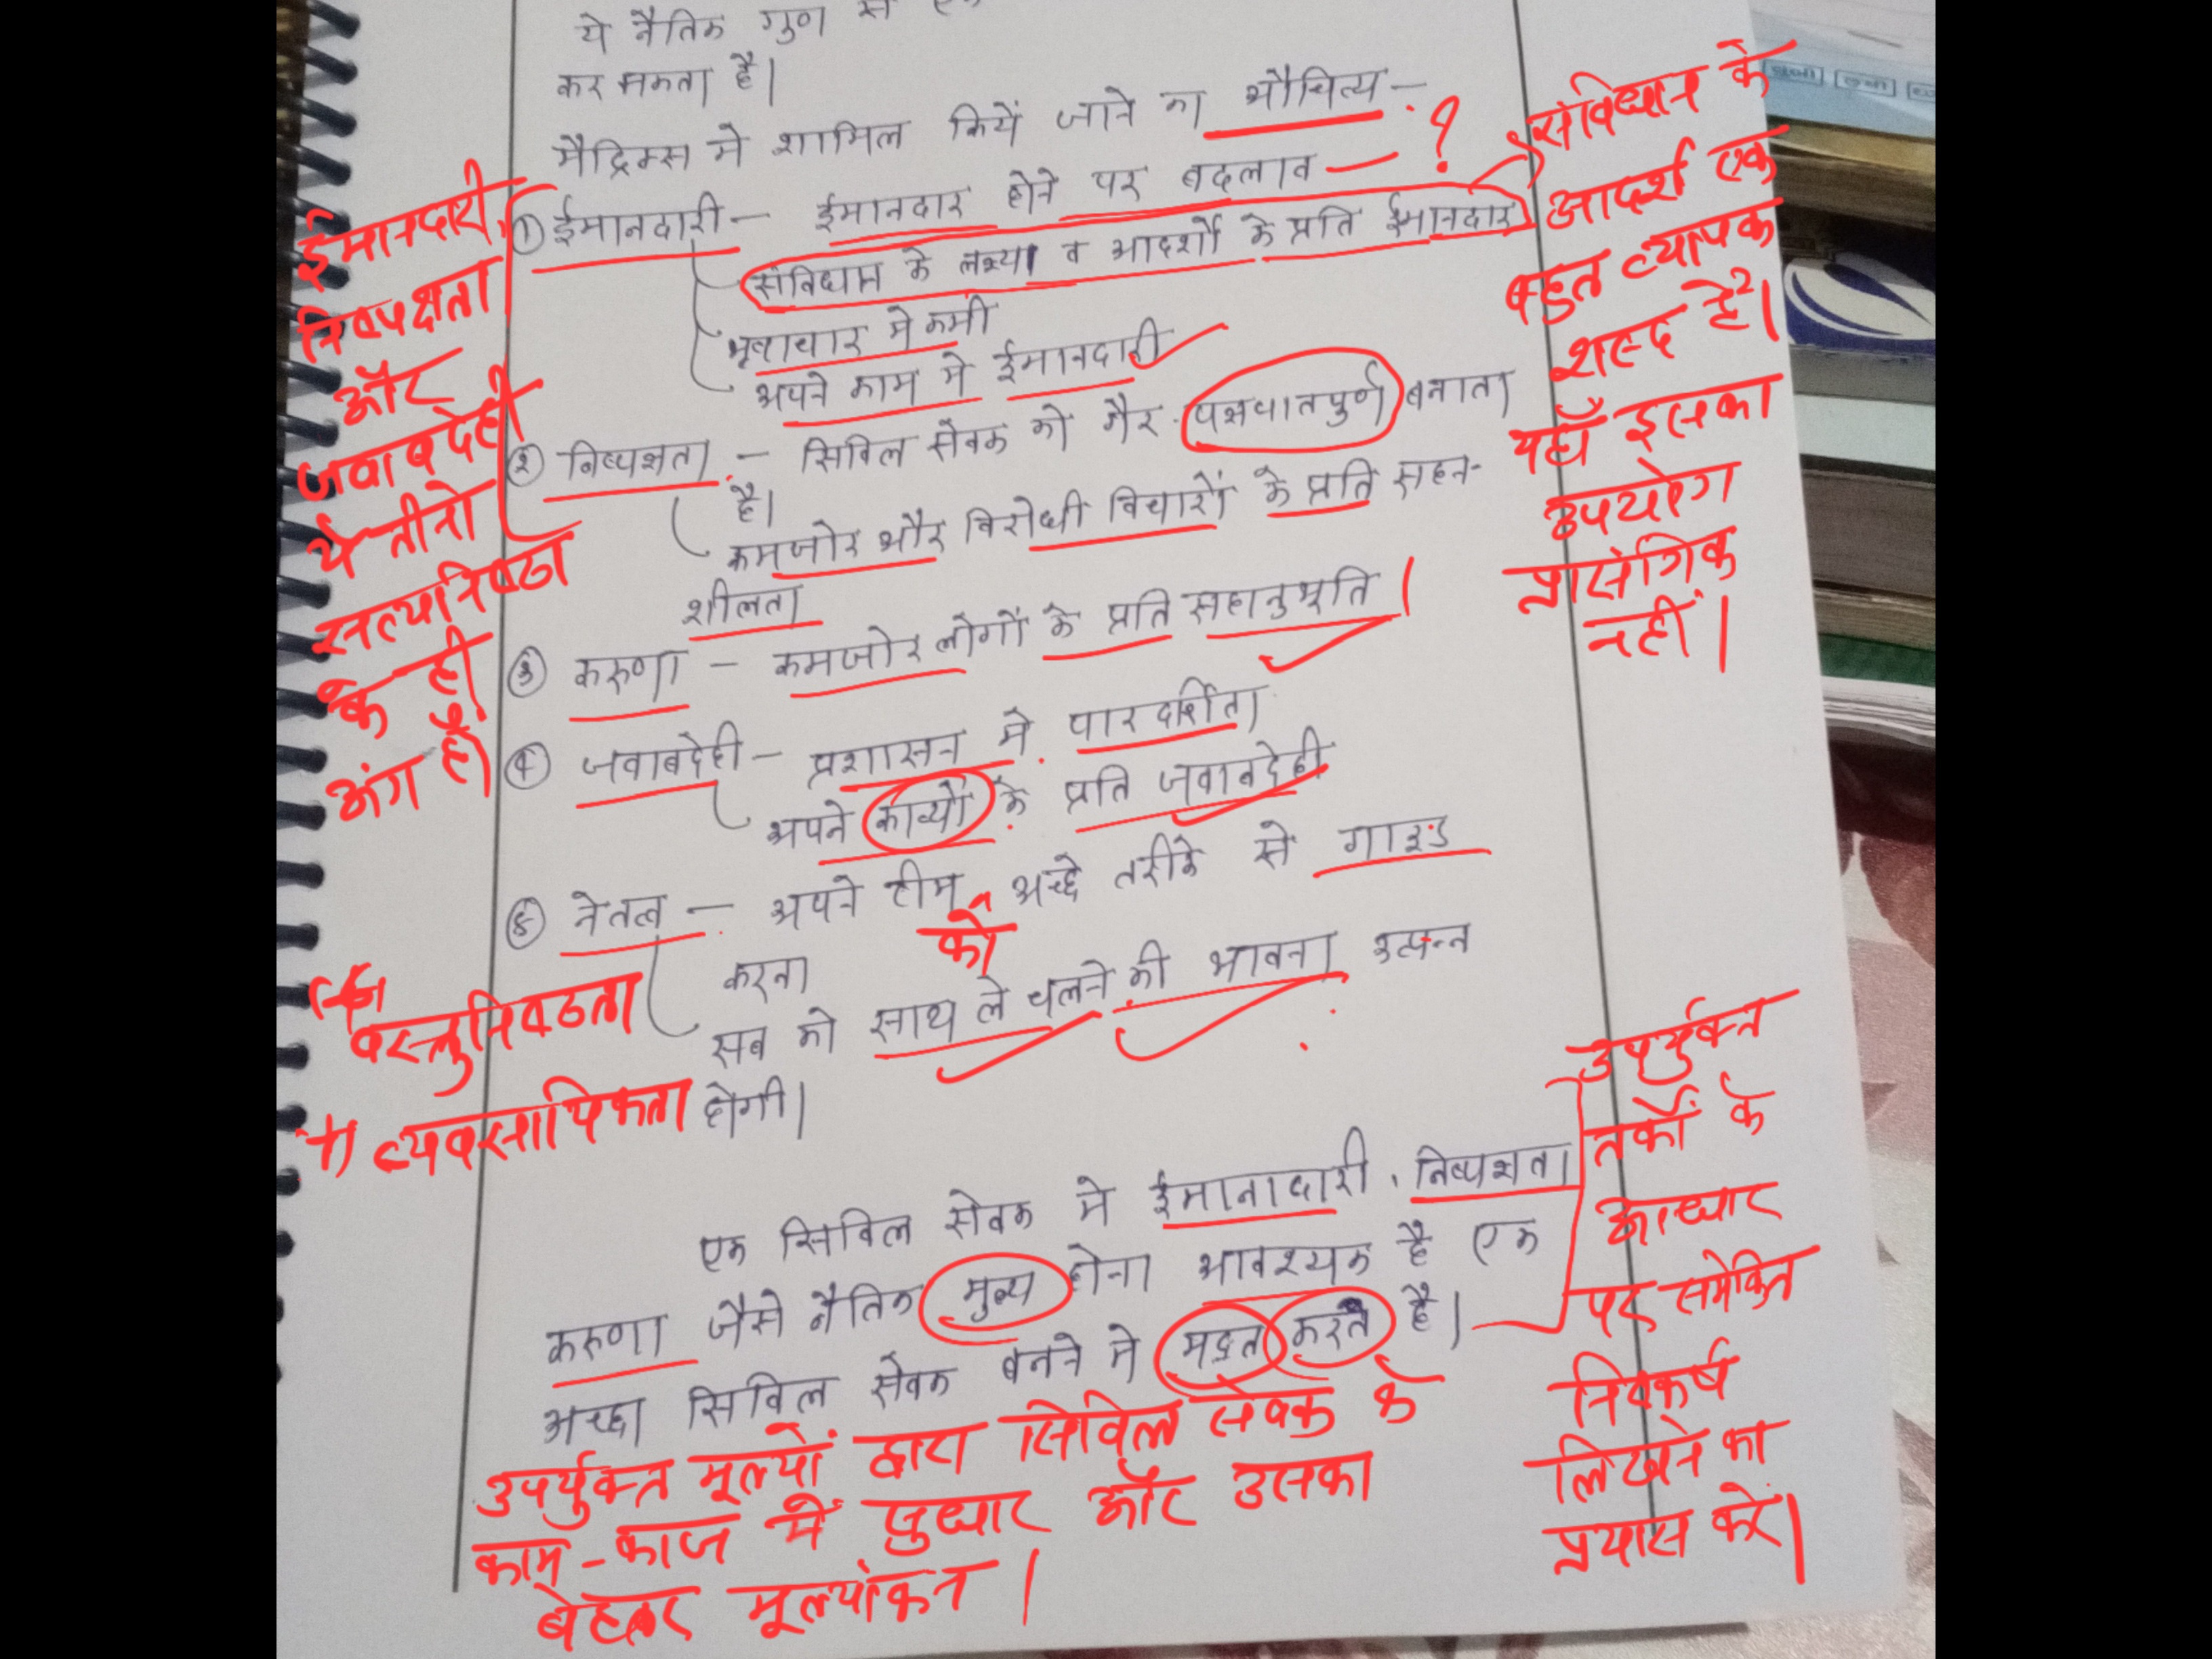 ये नैतिक गुण से
कर सकता है।
मैट्रिक्स मे शामिल किये जाने का औचित्य -
① ईमानदारी - ईमानदार होने पर बदलाव - ?
संविधान के लक्ष्यों व आदर्शों के प्रति ईमानदार
भ्रष्टाचार मे कमी
अपने काम मे ईमानदारी
② निष्पक्षता - सिविल सेवक को गैर पक्षपातपुर्ण बनाता
है।
कमजोर और विरोधी विचारों के प्रति सहन-
शीलता
③ करुणा - कमजोर लोगों के प्रति सहानुभूति।
④ जवाबदेही - प्रशासन मे पारदर्शिता
अपने कार्यो के प्रति जवाबदेही
⑤ नेतत्व - अपने टीम को अच्छे तरीके से गाइड
करना
सब को साथ ले चलने की भावना उत्पन्न
होगी।
एक सिविल सेवक मे ईमानादारी, निष्पक्षता
करुणा जैसे नैतिक मुल्य होना आवश्यक है एक
अच्छा सिविल सेवक बनने मे मद्दत करते है।
उपर्युक्त मूल्यों द्वारा सिविल सेवक के
काम-काज में सुधार और उसका
बेहतर मूल्यांकन।
ईमानदारी,
निष्पक्षता
और
जवाबदेही
ये तीनो
सत्यनिष्ठा
के ही
अंग हैं।
वस्तुनिष्ठता
व्यवसायिकता
संविधान के
आदर्श एक
बहुत व्यापक
शब्द है।
यहाँ इसका
उपयोग
प्रासंगिक
नहीं।
उपर्युक्त
तर्कों के
आधार
पर समेकित
निष्कर्ष
लिखने का
प्रयास करें।